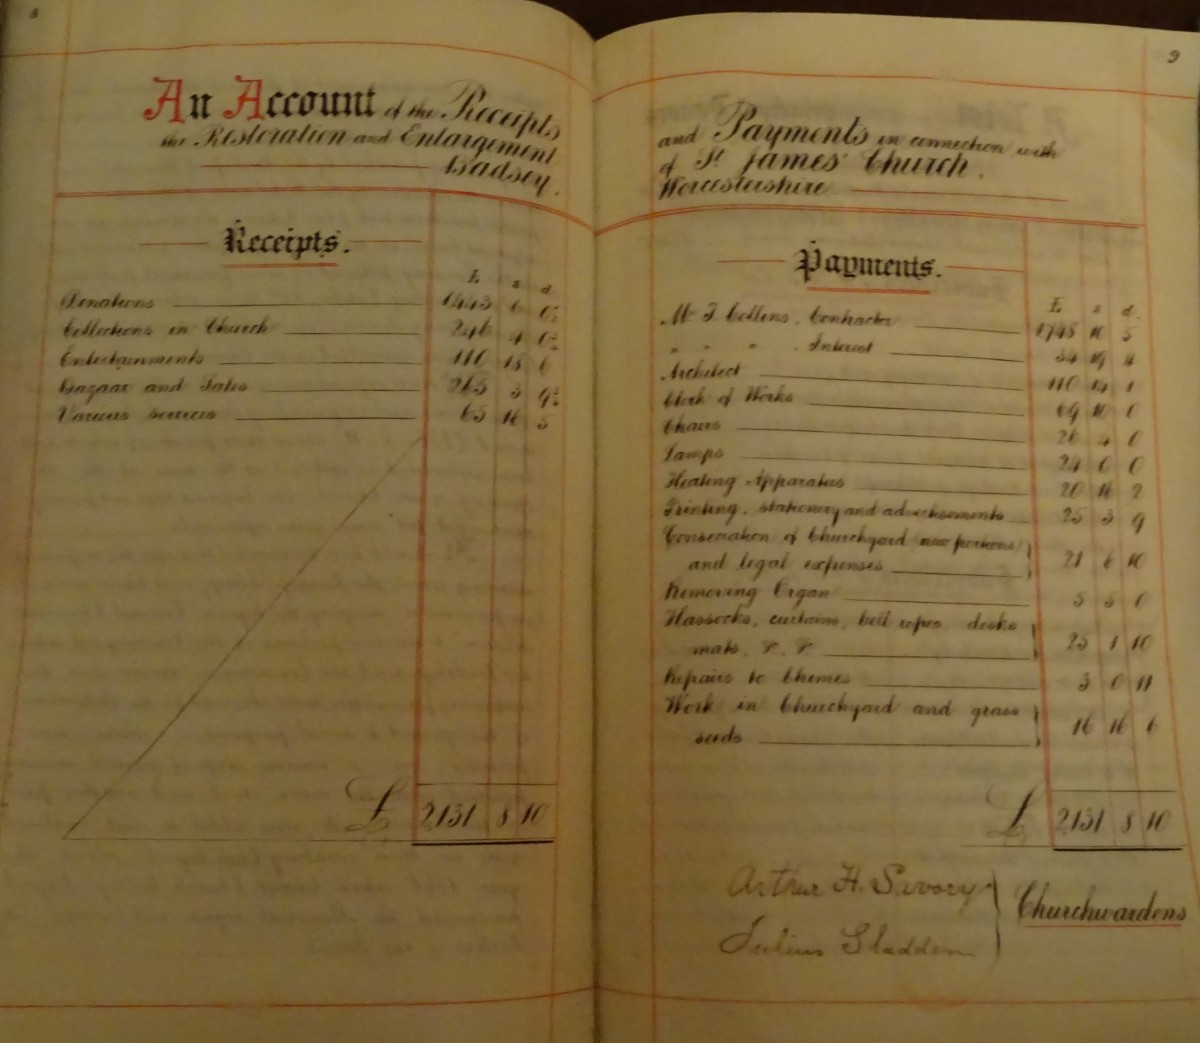 8
An Account of the Receipts
the Restoration and Enlargement
Badsey.
Receipts.
£ s d
Donations 1443 6 0¾
Collections in Church 246 4 0½
Entertainments 110 18 6
Bazaar and Sales 265 3 9¾
Various sources 65 16 5
£ 2131 8 10
9
and Payments in connection with
of St James' Church.
Worcestershire
Payments.
£ s d.
Mr J. Collins, Contractor 1748 10 5
" " " Interest 34 19 4
Architect 110 14 1
Clerk of Works 69 10 0
Chairs 26 4 0
Lamps 24 0 0
Heating Apparatus 20 16 2
Printing, stationery and advertisements 25 3 9
Consecration of Churchyard new portions
and legal expenses 21 6 10
Removing Organ 5 5 0
Hassocks, curtains, bell ropes, desks
mats, &c, &c 25 1 10
Repairs to Chimes 3 0 11
Work in Churchyard and grass
seeds 16 16 6
£ 2131 8 10
Arthur H. Savory
Julius Sladden
Churchwardens